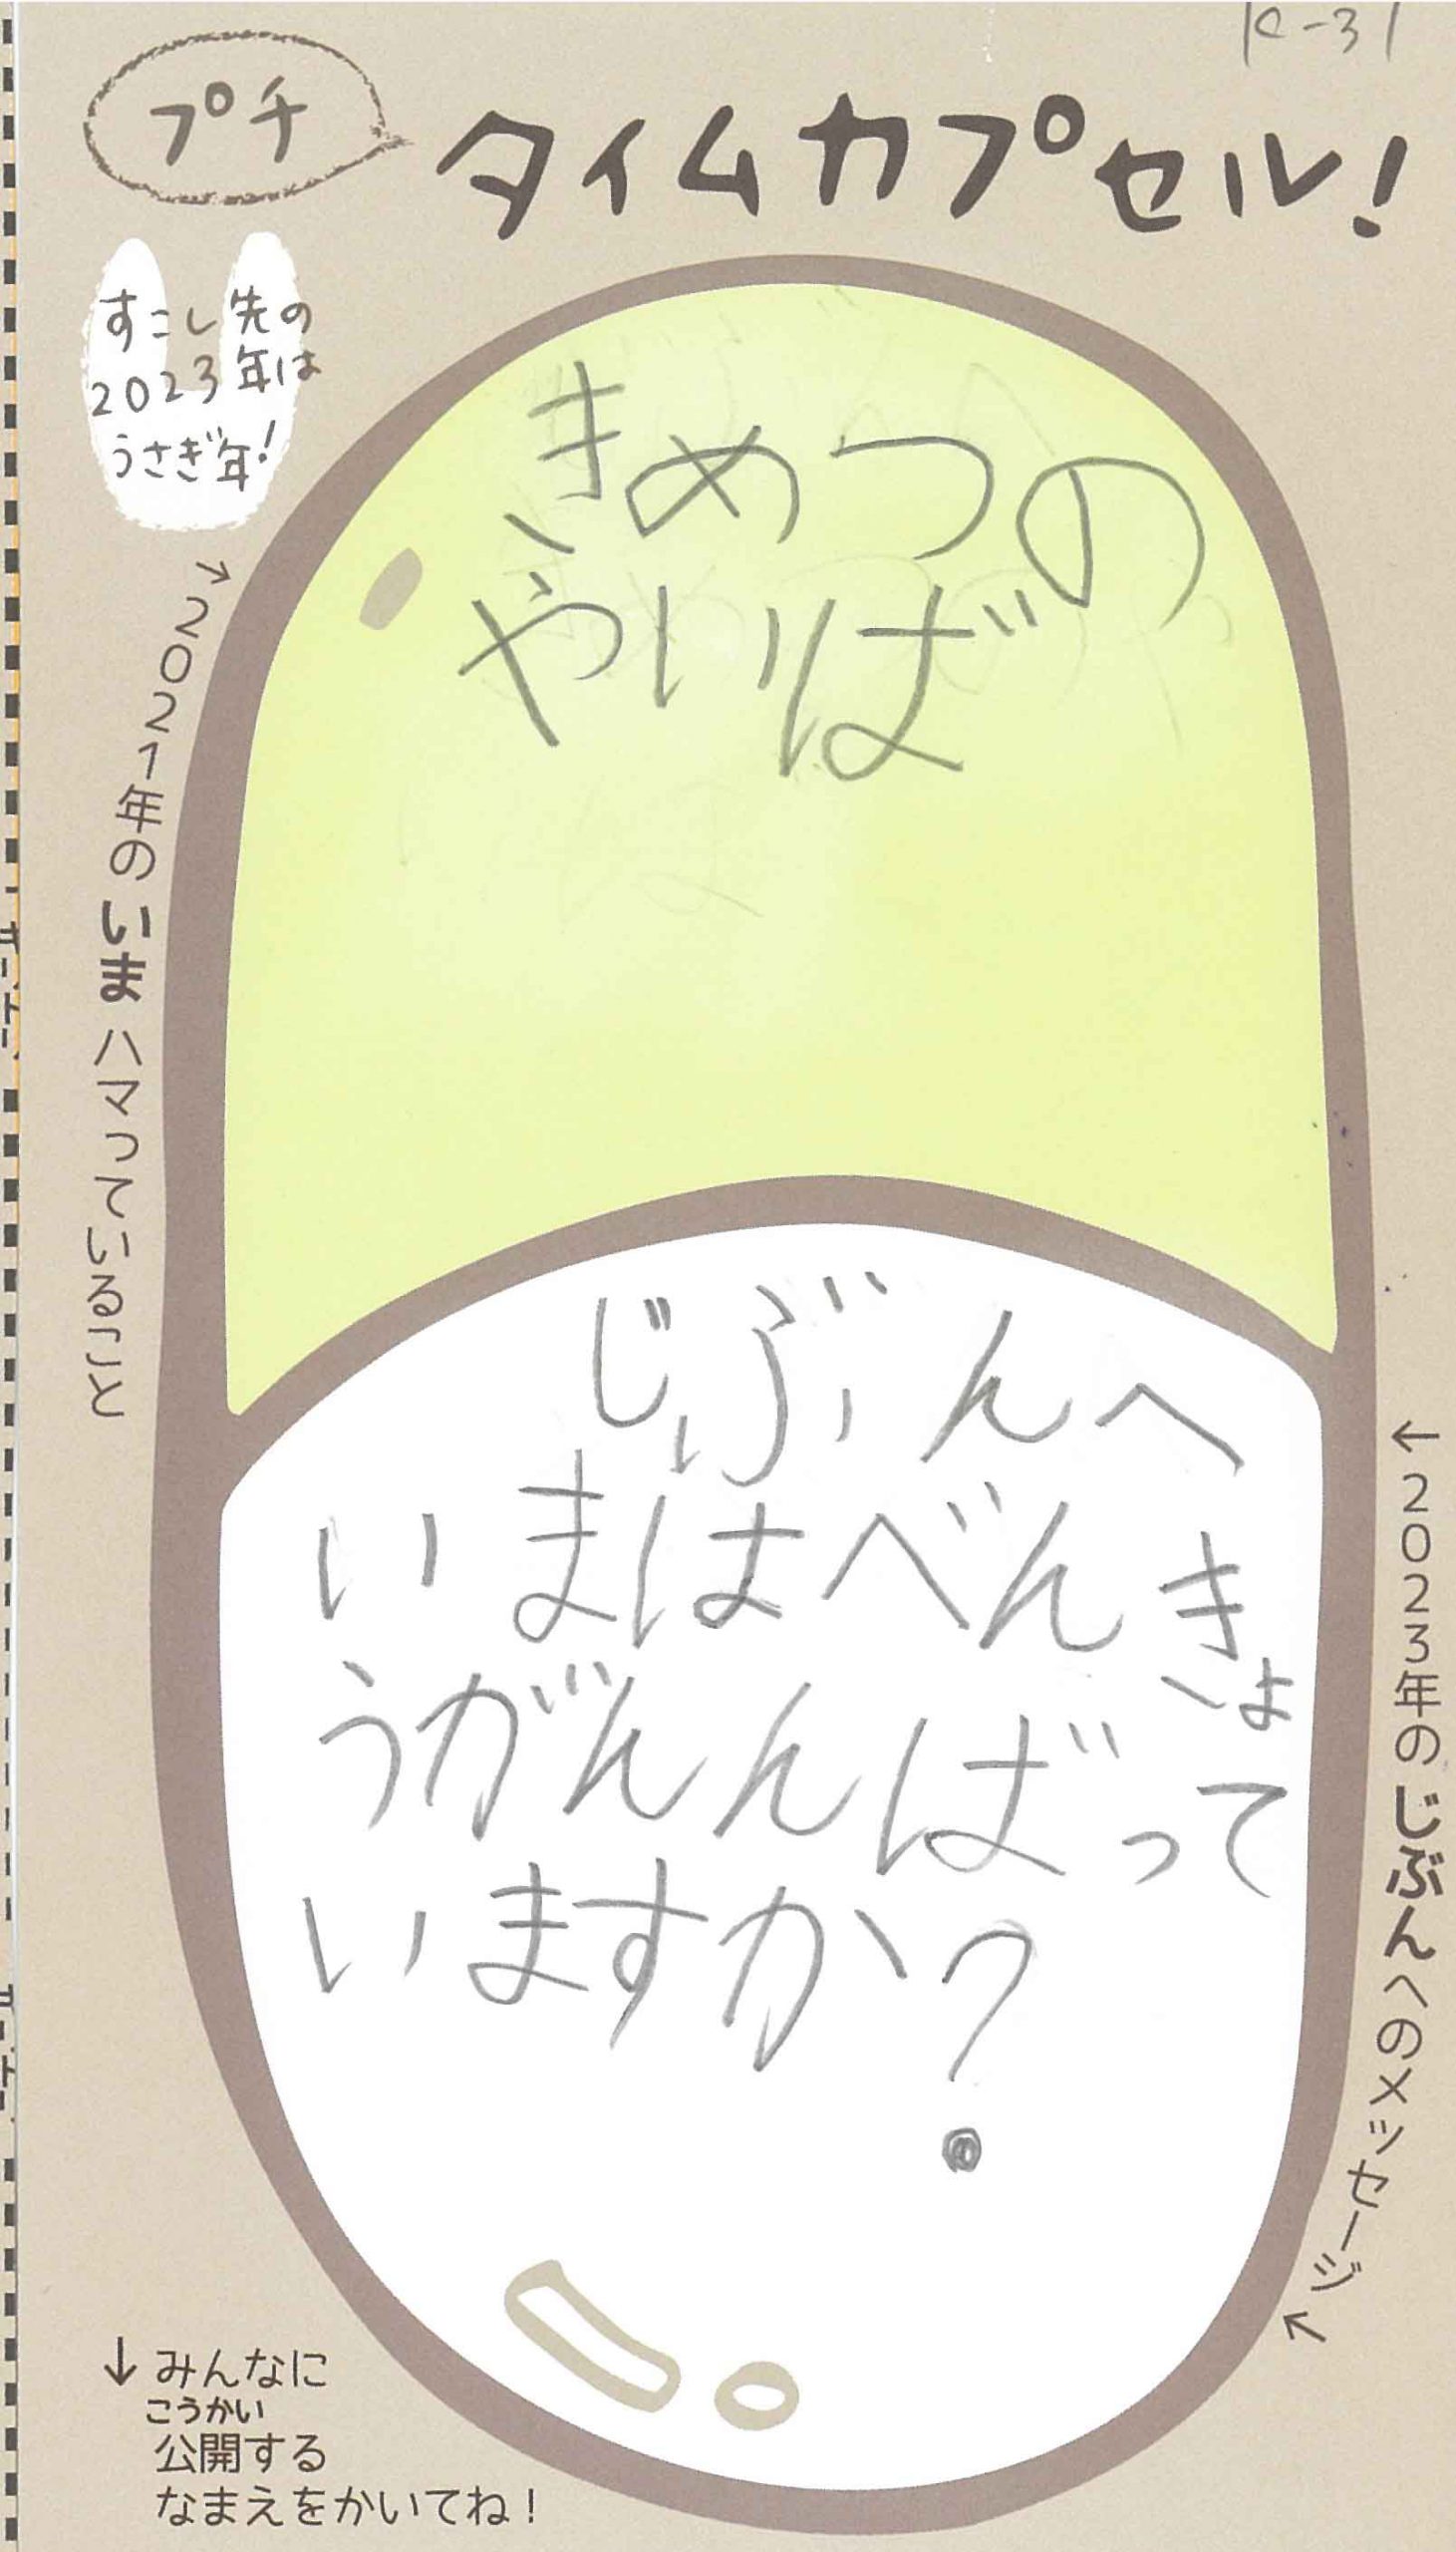 K-31
プチ
タイムカプセル!
すこし先の
2023年は
うさぎ年!
→2021年のいまハマっていること
きめつの
やいば
じぶんへ
いまはべんきょ
うがんんばって
いますか?
←2023年のじぶんへのメッセージ
↓みんなに
こうかい
公開する
なまえをかいてね!